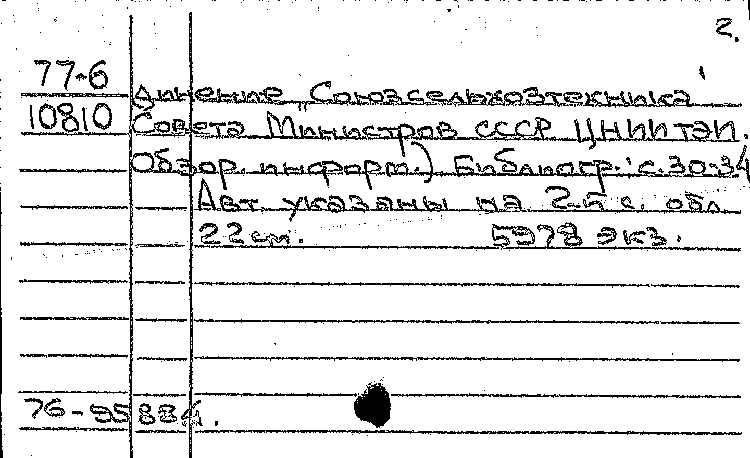 2.
77-6
динение „Союзсельхозтехника"
10810 Совета Министров СССР ЦНИИТЭИ.
Обзор. информ.) Библиогр.: с. 30-34
Авт. указаны на 2-й с. обл.
22 см. 5978 экз.
76-95884.